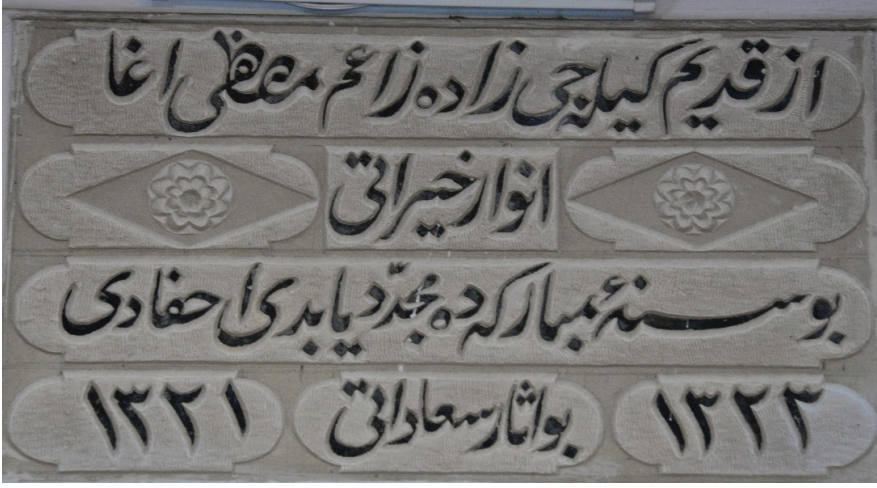 از قدیم کیله جی زاده زاعم مصطفی اغا
انوار خیراتی
بو سنهٔ مبارکه ده مجدّد یابدی احفادی
١٣٢٣ بو اثار سعاداتی ١٣٢١